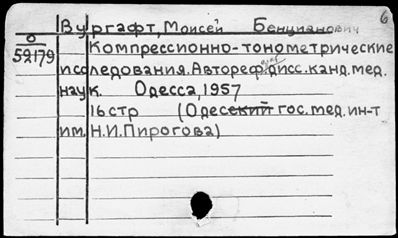 6
Вургафт, Моисей Бенцианович
О
52179
Компрессионно-тонометрические
исследования. Автореф. дисс. канд. мед.
наук. Одесса, 1957
16 стр (Одесский гос. мед. ин-т
им. Н.И. Пирогова)